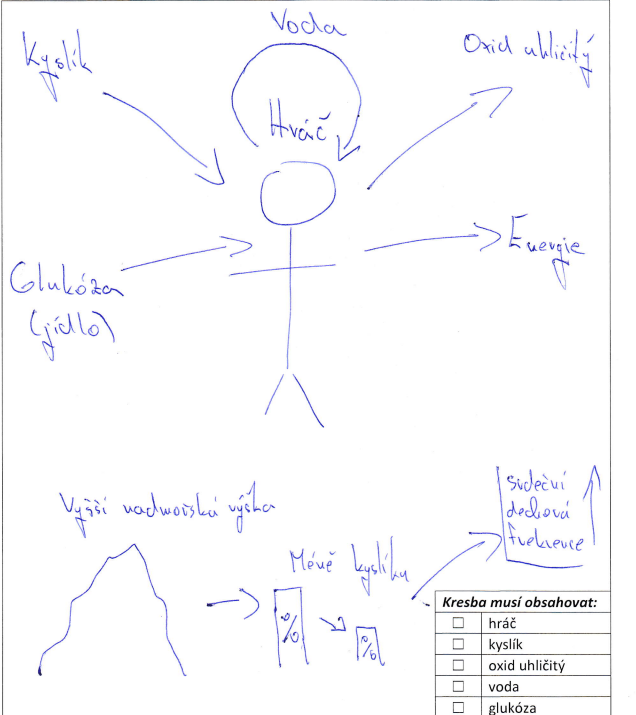 Voda
Kyslík
Oxid uhličitý
Hráč
Energie
Glukóza
(jídlo)
Vyšší nadmořská výška
Méně kyslíku
%
%
Srdeční
dechová
frekvence
Kresba musí obsahovat:
☐ hráč
☐ kyslík
☐ oxid uhličitý
☐ voda
☐ glukóza